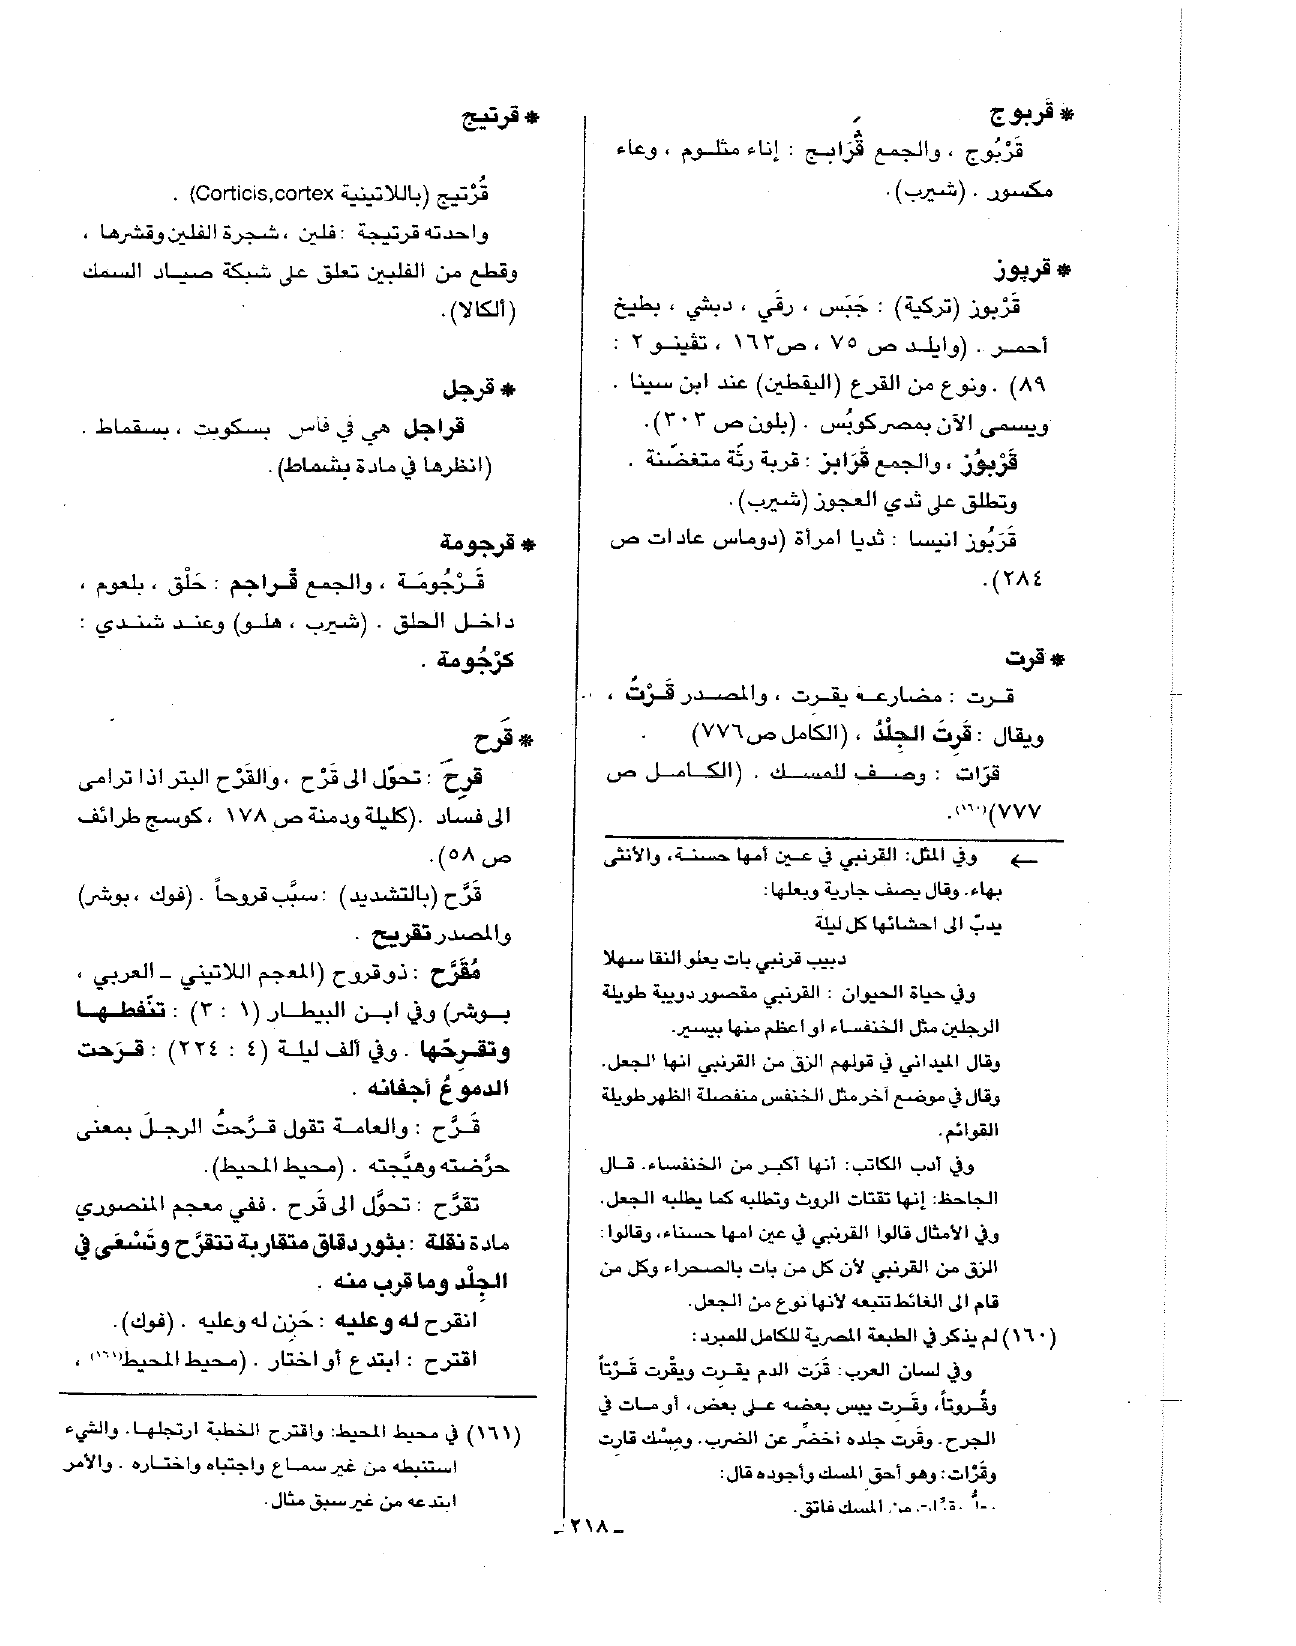 * قربوج
قَرْبُوج ، والجمع قُرَابج : إناء مثلوم ، وعاء
مكسور . (شيرب).
* قربوز
قَرْبوز (تركية) : جَبَس ، رقّي ، دبشي ، بطيخ
أحمر . (وايلد ص ٧٥ ، ص١٦٣ ، تڤينو ٢ :
٨٩) . ونوع من القرع (اليقطين) عند ابن سينا .
ويسمى الآن بمصر كوبُس . (بلون ص ٣٠٣).
قَرْبوُز ، والجمع قَرَابز : قربة رثّة متغضّنة .
وتطلق على ثدي العجوز (شيرب).
قَرَبُوز انيسا : ثديا امرأة (دوماس عادات ص
٢٨٤).
* قرت
قرت : مضارعه يقرت ، والمصدر قَرْتُ ،
ويقال : قَرِتَ الجِلْدُ ، (الكامل ص٧٧٦) .
قرّات : وصف للمسك . (الكامل ص
٧٧٧)(١٦٠).
← وفي المثل: القرنبي في عين أمها حسنة، والأنثى
بهاء. وقال يصف جارية وبعلها:
يدبّ الى احشائها كل ليلة
دبيب قرنبي بات يعلو النقا سهلا
وفي حياة الحيوان : القرنبي مقصور دويبة طويلة
الرجلين مثل الخنفساء او اعظم منها بيسير.
وقال الميداني في قولهم الزق من القرنبي انها الجعل.
وقال في موضع آخر مثل الخنفس منفصلة الظهر طويلة
القوائم.
وفي أدب الكاتب: أنها أكبر من الخنفساء. قال
الجاحظ: إنها تقتات الروث وتطلبه كما يطلبه الجعل.
وفي الأمثال قالوا القرنبي في عين امها حسناء، وقالوا:
الزق من القرنبي لأن كل من بات بالصحراء وكل من
قام الى الغائط تتبعه لأنها نوع من الجعل.
(١٦٠) لم يذكر في الطبعة المصرية للكامل للمبرد:
وفي لسان العرب: قَرَت الدم يقرت ويقْرت قَرْتاً
وقُروتاً، وقَرت يبس بعضه على بعض، أو مات في
الجرح. وقَرت جلده أخضرّ عن الضرب. ومِسْك قارت
وقَرّات: وهو أحق المسك وأجوده قال:
قرّات من المسك فاتق.
* قرتيج
قُرْتيج (باللاتينية Corticis,cortex) .
واحدته قرتيجة : فلين ، شجرة الفلين وقشرها ،
وقطع من الفلبين تعلق على شبكة صياد السمك
(ألكالا).
* قرجل
قراجل هي في فاس بسكويت ، بسقماط .
(انظرها في مادة بشماط).
* قرجومة
قَرْجُومَة ، والجمع قْراجم : حَلْق ، بلعوم ،
داخل الحلق . (شيرب ، هلو) وعند شندي :
كرْجُومة .
* قَرح
قرِحَ : تحوّل الى قَرْح ، والقَرْح البتر اذا ترامى
الى فساد . (كليلة ودمنة ص ١٧٨ ، كوسج طرائف
ص ٥٨).
قَرَّح (بالتشديد) : سبَّب قروحاً . (فوك ، بوشر)
والمصدر تقريح .
مُقَرَّح : ذو قروح (المعجم اللاتيني - العربي ،
بوشر) وفي ابن البيطار (١ : ٣) : تنّفطها
وتقرحّها . وفي ألف ليلة (٤ : ٢٢٤) : قرَحت
الدموعُ أجفانه .
قَرَّح : والعامة تقول قرَّحتُ الرجلَ بمعنى
حرَّضته وهيَّجته . (محيط المحيط).
تقرَّح : تحوَّل الى قَرح . ففي معجم المنصوري
مادة نقلة : بثور دقاق متقاربة تتقرَّح وتَسْعَى في
الجِلْد وما قرب منه .
انقرح له وعليه : حَزِن له وعليه . (فوك).
اقترح : ابتدع أو اختار . (محيط المحيط(١٦١) ،
(١٦١) في محيط المحيط: واقترح الخطبة ارتجلها. والشيء
استنبطه من غير سماع واجتباه واختاره . والأمر
ابتدعه من غير سبق مثال.
ـ ٢١٨ ـ